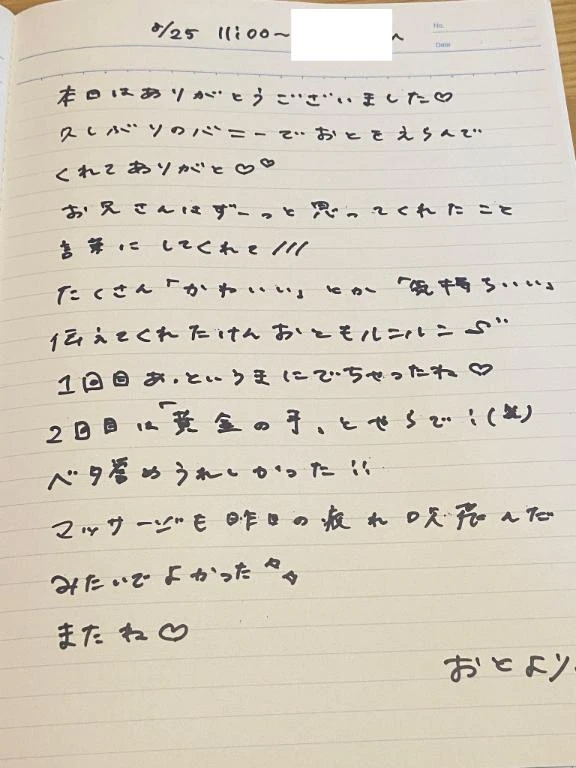 8/25 11:00〜
No.
Date
本日はありがとうございました♡
久しぶりのバニーでおとをえらんで
くれてありがと♡♡
お兄さんはずーっと思ってくれたこと
言葉にしてくれて///
たくさん「かわいい」とか「気持ちいい」
伝えてくれたけんおともルンルン
1回目あっというまにでちゃったね♡
2回目は「黄金の手」とやらで!(笑)
ベタ誉めうれしかった!!
マッサージも昨日の疲れ吹き飛んだ
みたいでよかった
またね♡
おとより